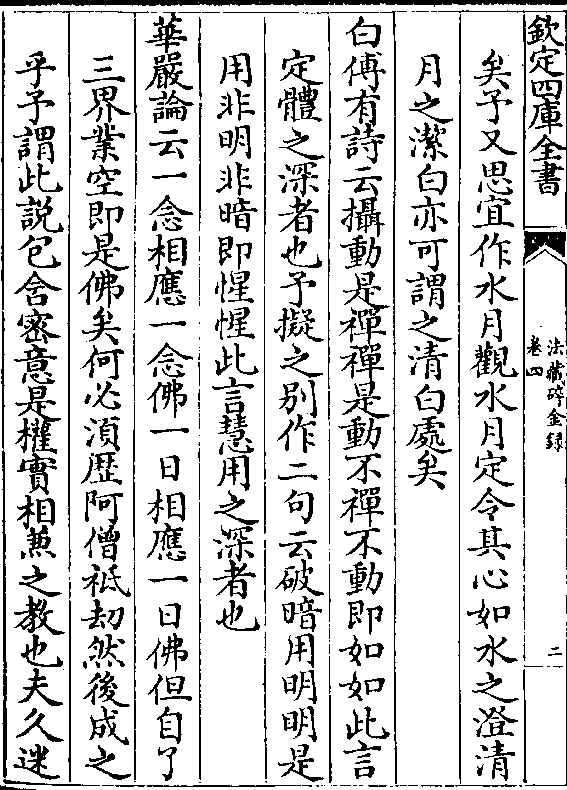 欽定四庫全書
法藏碎金録
卷四
二
矣予又思宜作水月觀水月定令其心如水之澄清
月之潔白亦可謂之清白處矣
白傅有詩云攝動是禪禪是動不禪不動即如如此言
定體之深者也予擬之别作二句云破暗用明明是
用非明非暗即惺惺此言慧用之深者也
華嚴論云一念相應一念佛一日相應一日佛但自了
三界業空即是佛矣何必湏歴阿僧祇劫然後成之
乎予謂此説包含密意是權實相兼之教也夫久迷